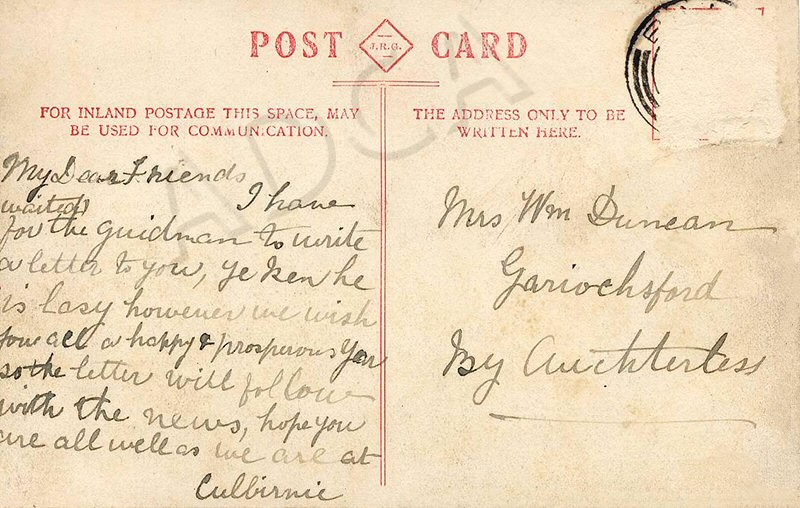 POST J.R.G. CARD
FOR INLAND POSTAGE THIS SPACE, MAY
BE USED FOR COMMUNICATION.
THE ADDRESS ONLY TO BE
WRITTEN HERE.
My Dear Friends
I have
waited
for the guidman to write
a letter to you, ye ken he
is lasy however we wish
you all a happy & prosperous Year
so the letter will follow
with the news, hope you
are all well as we are at
Culbirnie
Mrs Wm Duncan
Gariochsford
By Auchterless
ADCA